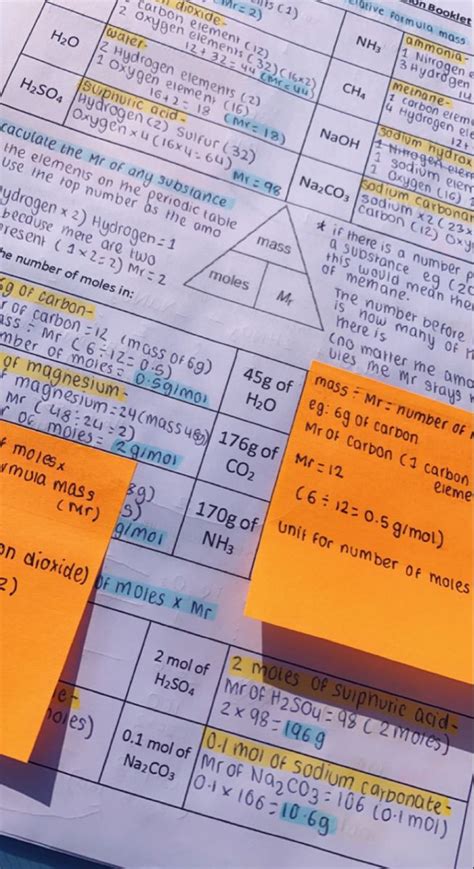 n dioxide-
(Mr = 2)
ents (1)
elative Formula Mass
on Booklet
1 carbon element (12)
2 oxygen elements (32) (16x2)
12 + 32 = 44 (Mr = 44)
H₂O
water-
2 Hydrogen elements (2)
1 Oxygen element (16)
16+2 = 18 (Mr = 18)
H₂SO₄
sulphuric acid-
Hydrogen (2) Sulfur (32)
Oxygen x 4 (16x4=64)
Mr = 98
NH₃
ammonia-
1 Nitrogen
3 Hydrogen
CH₄
methane-
1 carbon elem
4 Hydrogen e
NaOH
sodium hydrox
1 sodium ele
1 Oxygen (16)
Na₂CO₃
sodium carbona
sodium x2 (23x
carbon (12) Oxy
caculate the Mr of any substance
the elements on the periodic table
use the top number as the amo
ydrogen x 2) Hydrogen = 1
because there are two
resent (1x2=2) Mr = 2
mass
moles
Mr
* if there is a number
a substance eg (2C
this would mean th
of methane.
The number before
is how many of
there is
(no matter the am
the Mr stays
he number of moles in:
6g of carbon-
r of carbon = 12 (mass of 6g)
ass ÷ Mr (6÷12 = 0.5)
mber of moles = 0.5g/mol
of magnesium-
magnesium = 24 (mass 48g)
Mr (48÷24 = 2)
r of moles = 2g/mol
3g)
g/mol
45g of
H₂O
176g of
CO₂
170g of
NH₃
mass ÷ Mr = number of
eg: 6g of carbon
Mr of carbon (1 carbon
eleme
Mr = 12
(6 ÷ 12 = 0.5 g/mol)
unit for number of moles
f moles x
rmula mass
(Mr)
on dioxide)
2)
of moles x Mr
le-
moles)
2 mol of
H₂SO₄
2 moles of sulphuric acid-
Mr of H₂SO₄ = 98 (2 moles)
2 x 98 = 196g
0.1 mol of
Na₂CO₃
0.1 mol of sodium carbonate-
Mr of Na₂CO₃ = 106 (0.1 mol)
0.1 x 106 = 10.6g